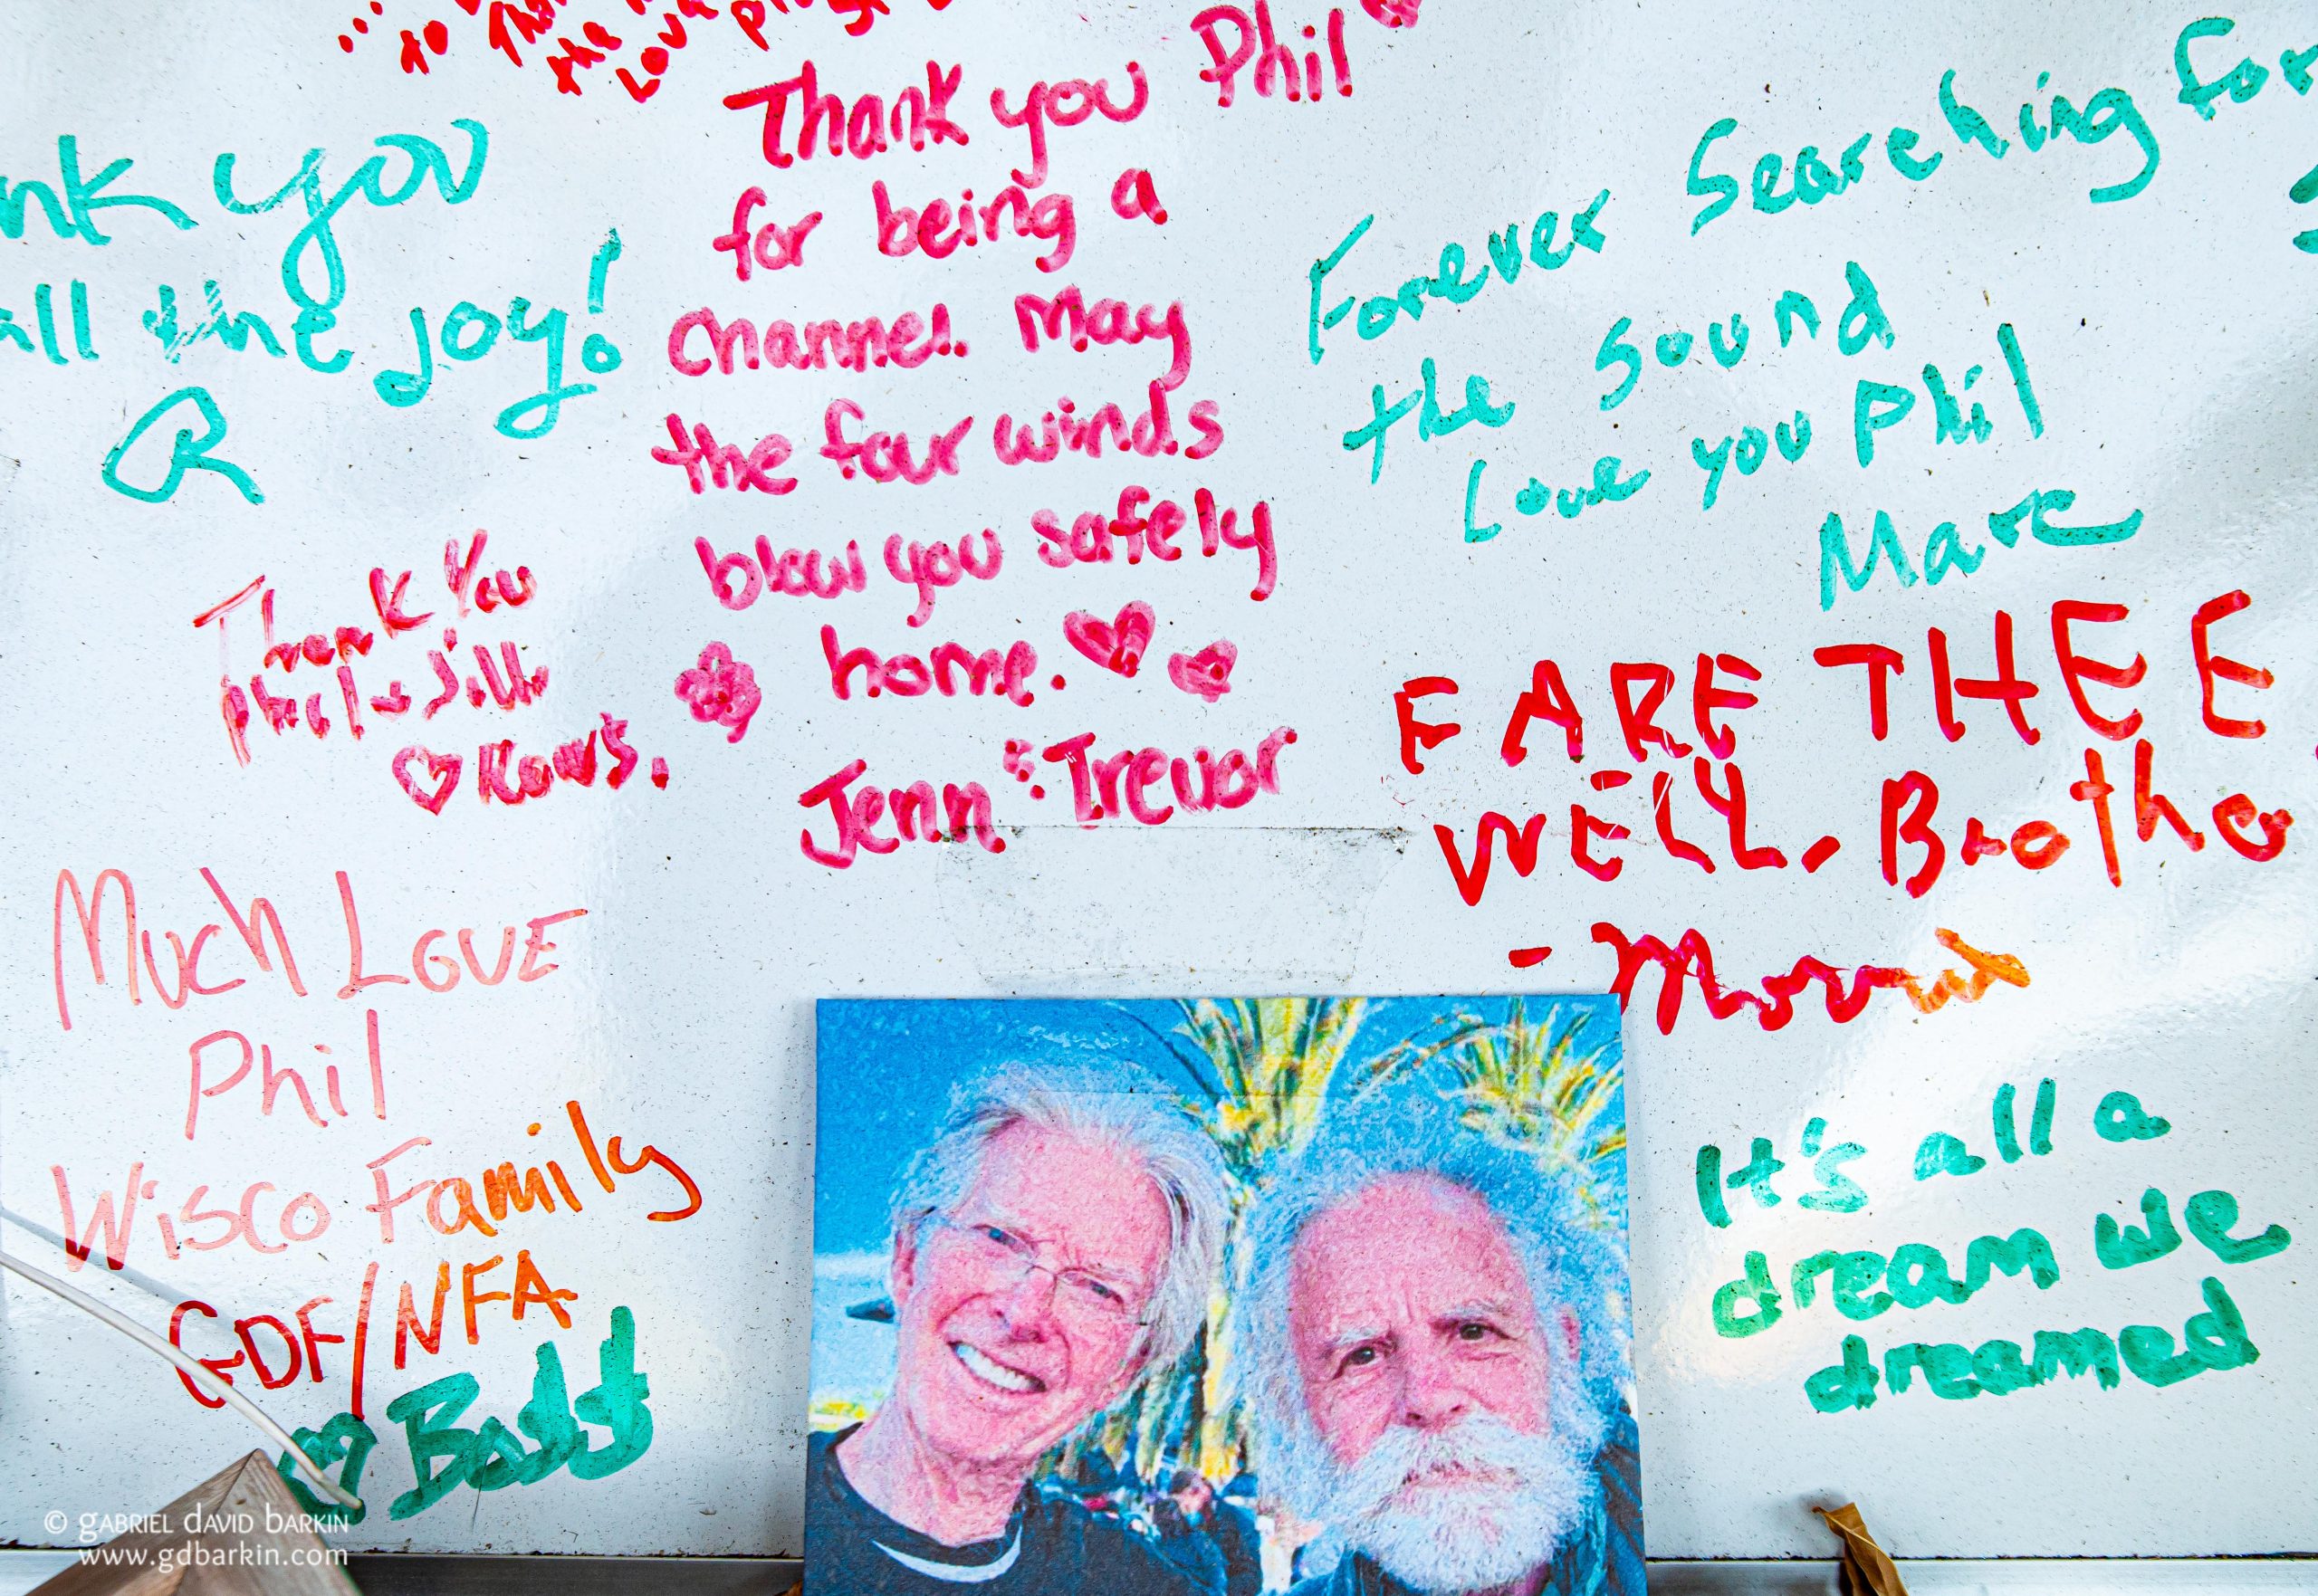 to
the
Love
Thank you Phil
for being a
Channel. May
the four winds
blow you safely
home.
Jenn & Trevor
nk you
all the joy!
R
Forever Searching for
the Sound
Love you Phil
Marc
Thank You
Phil & Jill
FARE THEE
WELL, Brother
Much Love
Phil
Wisco Family
GDF/NFA
It's all a
dream we
dreamed
© GABRIEL DAVID BARKIN
www.gdbarkin.com